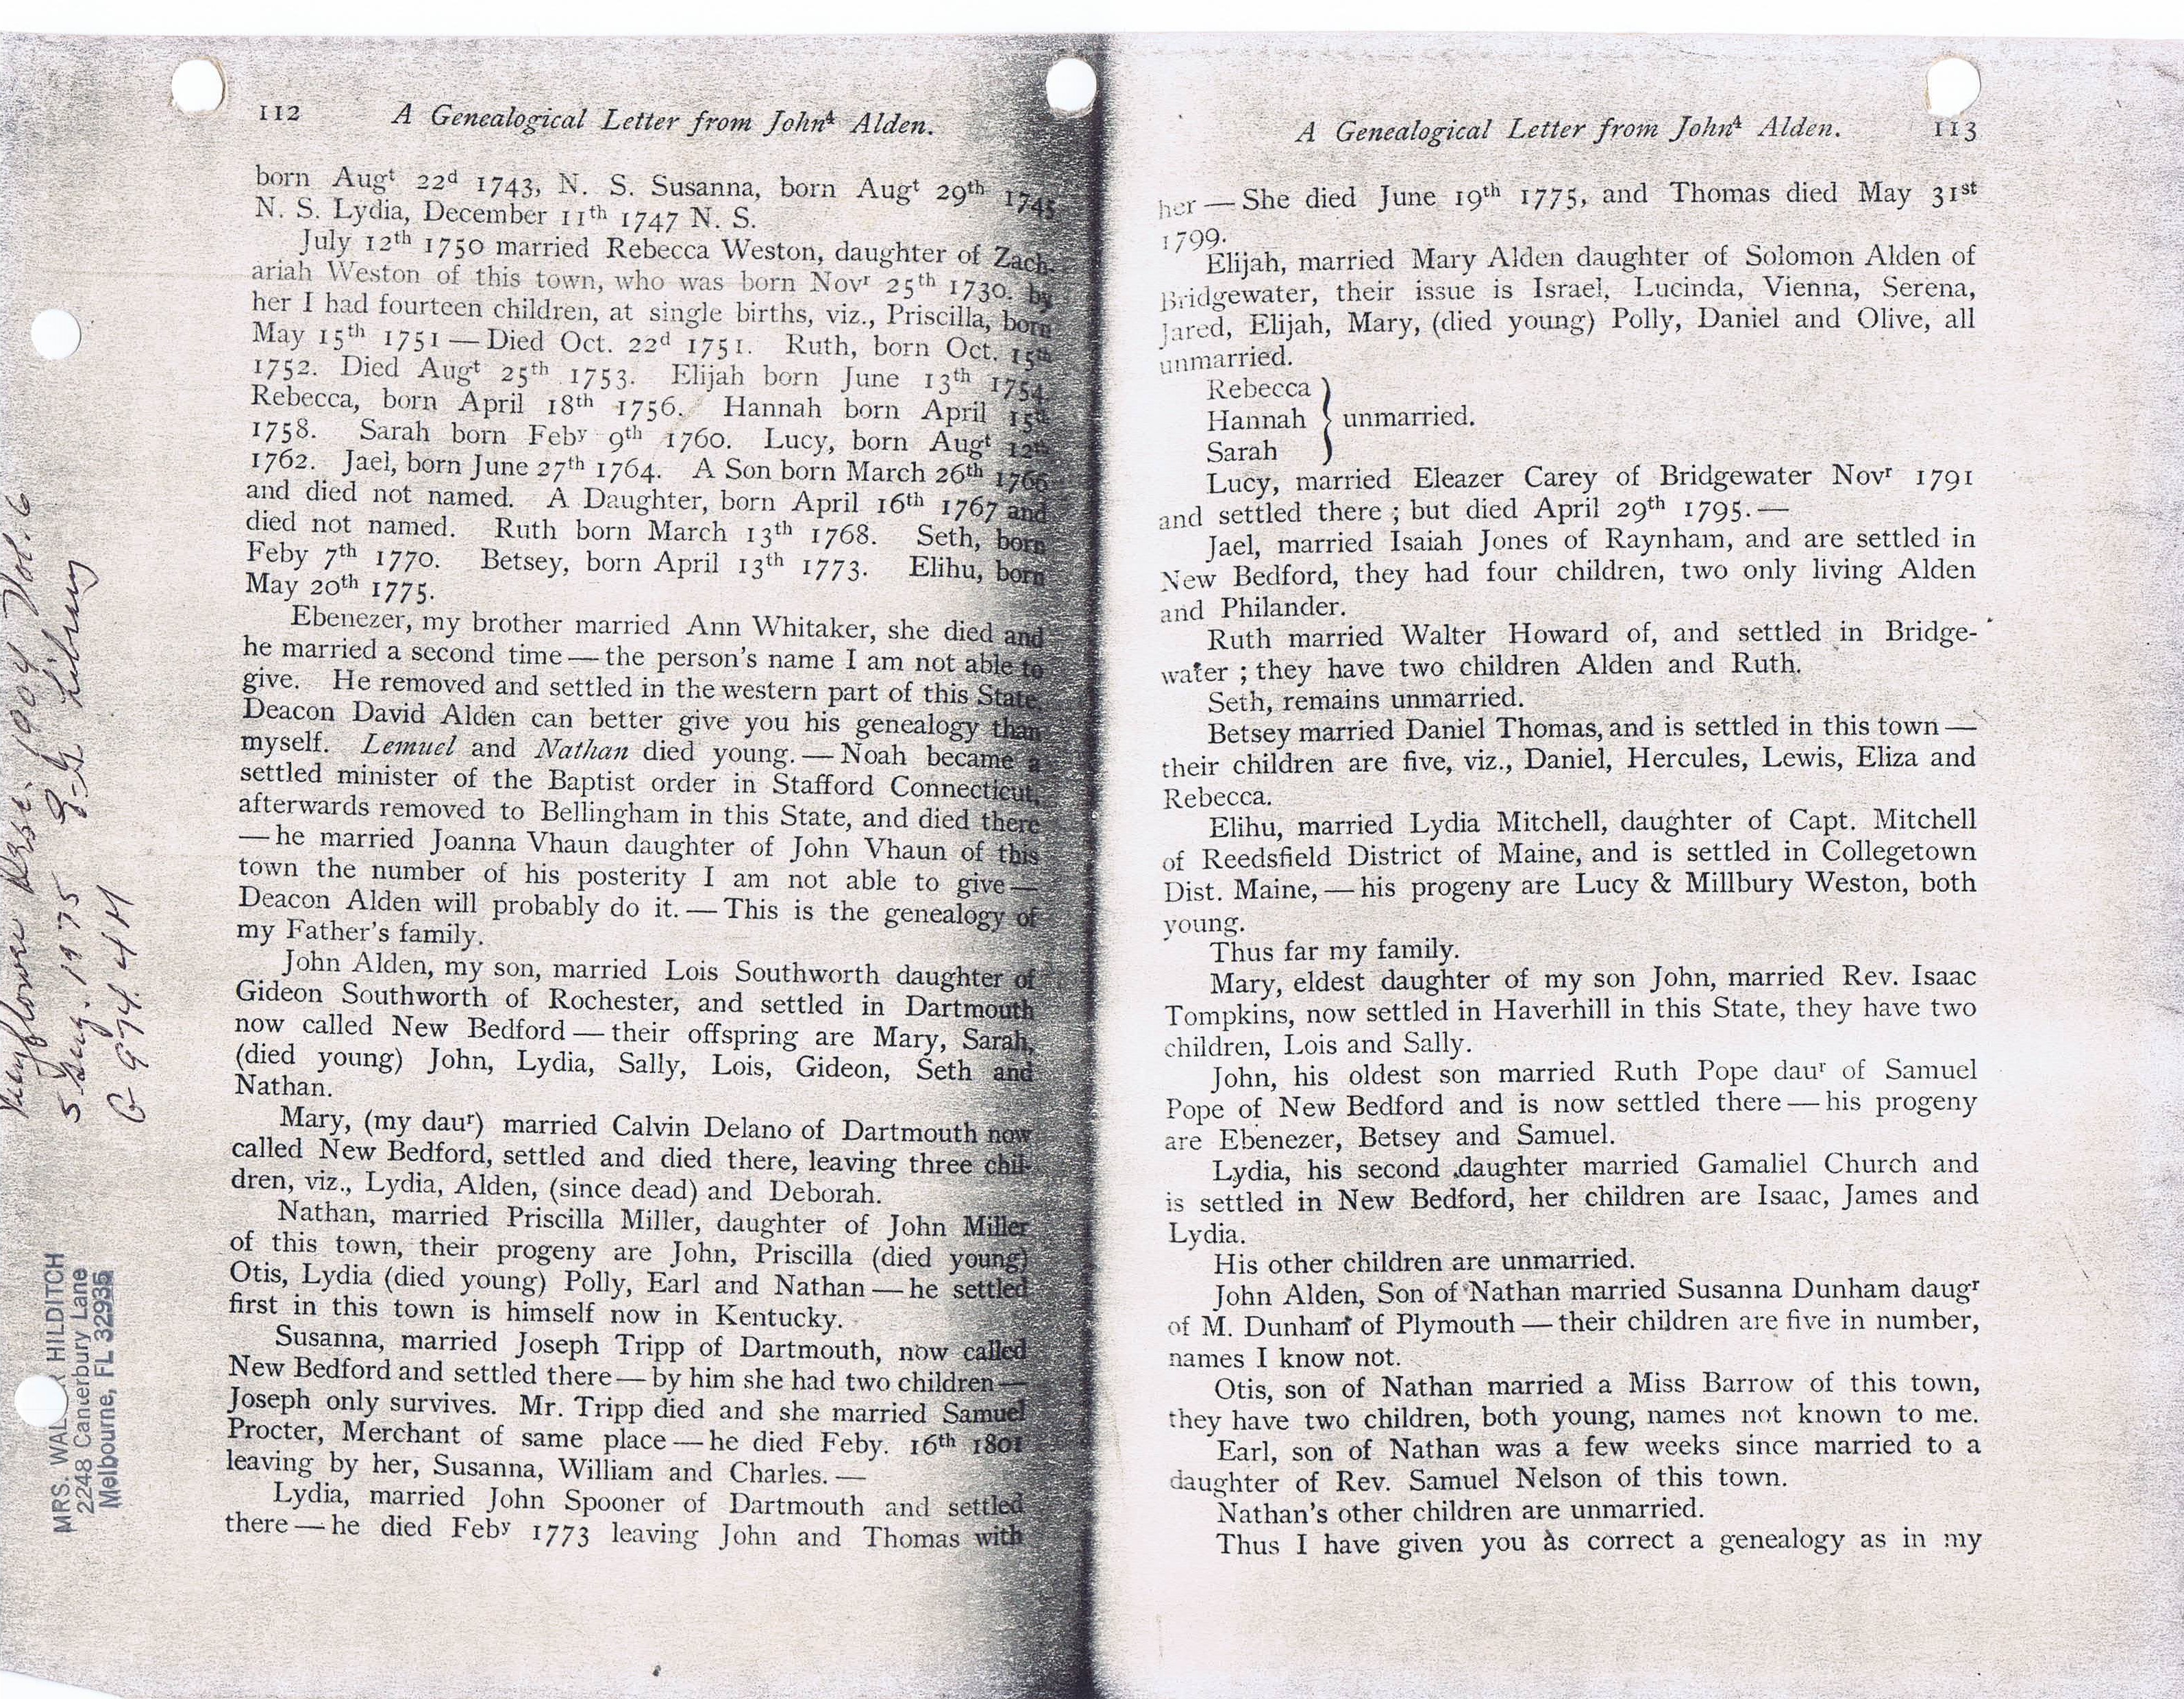 112 A Genealogical Letter from John⁴ Alden.
born Augᵗ 22ᵈ 1743, N. S. Susanna, born Augᵗ 29ᵗʰ 1745
N. S. Lydia, December 11ᵗʰ 1747 N. S.
July 12ᵗʰ 1750 married Rebecca Weston, daughter of Zach-
ariah Weston of this town, who was born Novʳ 25ᵗʰ 1730. by
her I had fourteen children, at single births, viz., Priscilla, born
May 15ᵗʰ 1751 — Died Oct. 22ᵈ 1751. Ruth, born Oct. 15ᵗʰ
1752. Died Augᵗ 25ᵗʰ 1753. Elijah born June 13ᵗʰ 1754.
Rebecca, born April 18ᵗʰ 1756. Hannah born April 15ᵗʰ
1758. Sarah born Febʸ 9ᵗʰ 1760. Lucy, born Augᵗ 12ᵗʰ
1762. Jael, born June 27ᵗʰ 1764. A Son born March 26ᵗʰ 1766
and died not named. A Daughter, born April 16ᵗʰ 1767 and
died not named. Ruth born March 13ᵗʰ 1768. Seth, born
Feby 7ᵗʰ 1770. Betsey, born April 13ᵗʰ 1773. Elihu, born
May 20ᵗʰ 1775.
Ebenezer, my brother married Ann Whitaker, she died and
he married a second time — the person's name I am not able to
give. He removed and settled in the western part of this State.
Deacon David Alden can better give you his genealogy than
myself. Lemuel and Nathan died young. — Noah became a
settled minister of the Baptist order in Stafford Connecticut,
afterwards removed to Bellingham in this State, and died there
— he married Joanna Vhaun daughter of John Vhaun of this
town the number of his posterity I am not able to give —
Deacon Alden will probably do it. — This is the genealogy of
my Father's family.
John Alden, my son, married Lois Southworth daughter of
Gideon Southworth of Rochester, and settled in Dartmouth
now called New Bedford — their offspring are Mary, Sarah,
(died young) John, Lydia, Sally, Lois, Gideon, Seth and
Nathan.
Mary, (my daurʳ) married Calvin Delano of Dartmouth now
called New Bedford, settled and died there, leaving three chil-
dren, viz., Lydia, Alden, (since dead) and Deborah.
Nathan, married Priscilla Miller, daughter of John Miller
of this town, their progeny are John, Priscilla (died young)
Otis, Lydia (died young) Polly, Earl and Nathan — he settled
first in this town is himself now in Kentucky.
Susanna, married Joseph Tripp of Dartmouth, now called
New Bedford and settled there — by him she had two children —
Joseph only survives. Mr. Tripp died and she married Samuel
Procter, Merchant of same place — he died Feby. 16ᵗʰ 1801
leaving by her, Susanna, William and Charles. —
Lydia, married John Spooner of Dartmouth and settled
there — he died Febʸ 1773 leaving John and Thomas with
A Genealogical Letter from John⁴ Alden. 113
her — She died June 19ᵗʰ 1775, and Thomas died May 31ˢᵗ
1799.
Elijah, married Mary Alden daughter of Solomon Alden of
Bridgewater, their issue is Israel, Lucinda, Vienna, Serena,
Jared, Elijah, Mary, (died young) Polly, Daniel and Olive, all
unmarried.
Rebecca
Hannah } unmarried.
Sarah
Lucy, married Eleazer Carey of Bridgewater Novʳ 1791
and settled there ; but died April 29ᵗʰ 1795. —
Jael, married Isaiah Jones of Raynham, and are settled in
New Bedford, they had four children, two only living Alden
and Philander.
Ruth married Walter Howard of, and settled in Bridge-
water ; they have two children Alden and Ruth.
Seth, remains unmarried.
Betsey married Daniel Thomas, and is settled in this town —
their children are five, viz., Daniel, Hercules, Lewis, Eliza and
Rebecca.
Elihu, married Lydia Mitchell, daughter of Capt. Mitchell
of Reedsfield District of Maine, and is settled in Collegetown
Dist. Maine, — his progeny are Lucy & Millbury Weston, both
young.
Thus far my family.
Mary, eldest daughter of my son John, married Rev. Isaac
Tompkins, now settled in Haverhill in this State, they have two
children, Lois and Sally.
John, his oldest son married Ruth Pope dauʳ of Samuel
Pope of New Bedford and is now settled there — his progeny
are Ebenezer, Betsey and Samuel.
Lydia, his second daughter married Gamaliel Church and
is settled in New Bedford, her children are Isaac, James and
Lydia.
His other children are unmarried.
John Alden, Son of Nathan married Susanna Dunham daugʳ
of M. Dunham of Plymouth — their children are five in number,
names I know not.
Otis, son of Nathan married a Miss Barrow of this town,
they have two children, both young, names not known to me.
Earl, son of Nathan was a few weeks since married to a
daughter of Rev. Samuel Nelson of this town.
Nathan's other children are unmarried.
Thus I have given you as correct a genealogy as in my
Mayflower 1904 Vol. 6
5 Aug. 1975 Library
G 974.4 H
MRS. HILDITCH
2248 Canterbury Lane
Melbourne, FL 32935